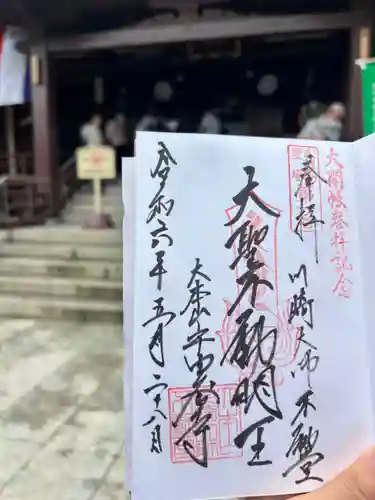 大開帳奉拝記念
奉拝
川崎大師不動堂
大聖不動明王
大本山平間寺
令和六年五月二十八日